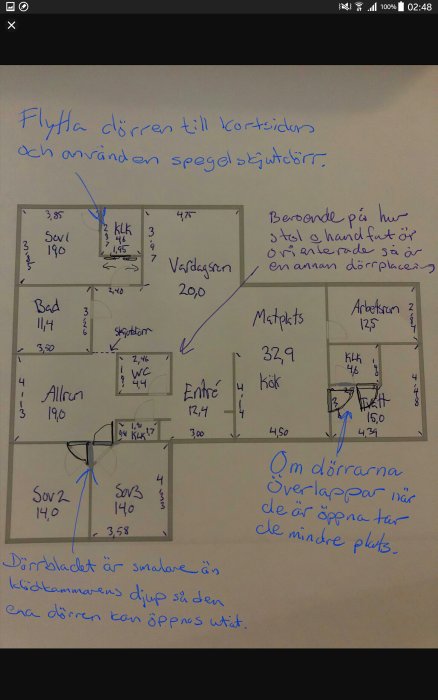 100% 02:48
Flytta dörren till kortsidan
och använden spegelskjutdörr.
Beroende på hur
stol o handfat är
orienterade så är
en annan dörrplacering
3,85
4,75
Sov1
19,0
KLK
4,6
1,95
Vardagsrum
20,0
2,40
Bad
11,4
3,50
skjutdörr
Matplats
32,9
Kök
Arbetsrum
12,5
KLK
4,6
2,46
WC
4,4
Allrum
19,0
Entré
12,4
Tvätt
15,0
KLK
3,00
4,50
4,34
Sov2
14,0
Sov3
14,0
3,58
Om dörrarna
överlappar när
de är öppna tar
de mindre plats.
Dörrbladet är smalare än
klädkammarens djup så den
ena dörren kan öppnas utåt.